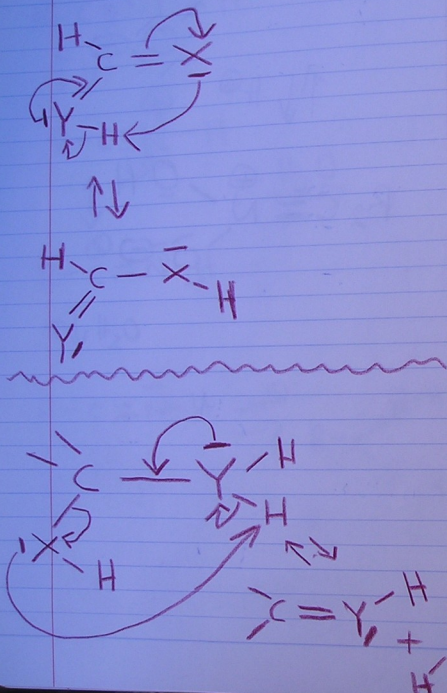 H
C = X
Y - H
H
C - X
H
Y
C - Y - H
H
X - H
C = Y - H
+
H